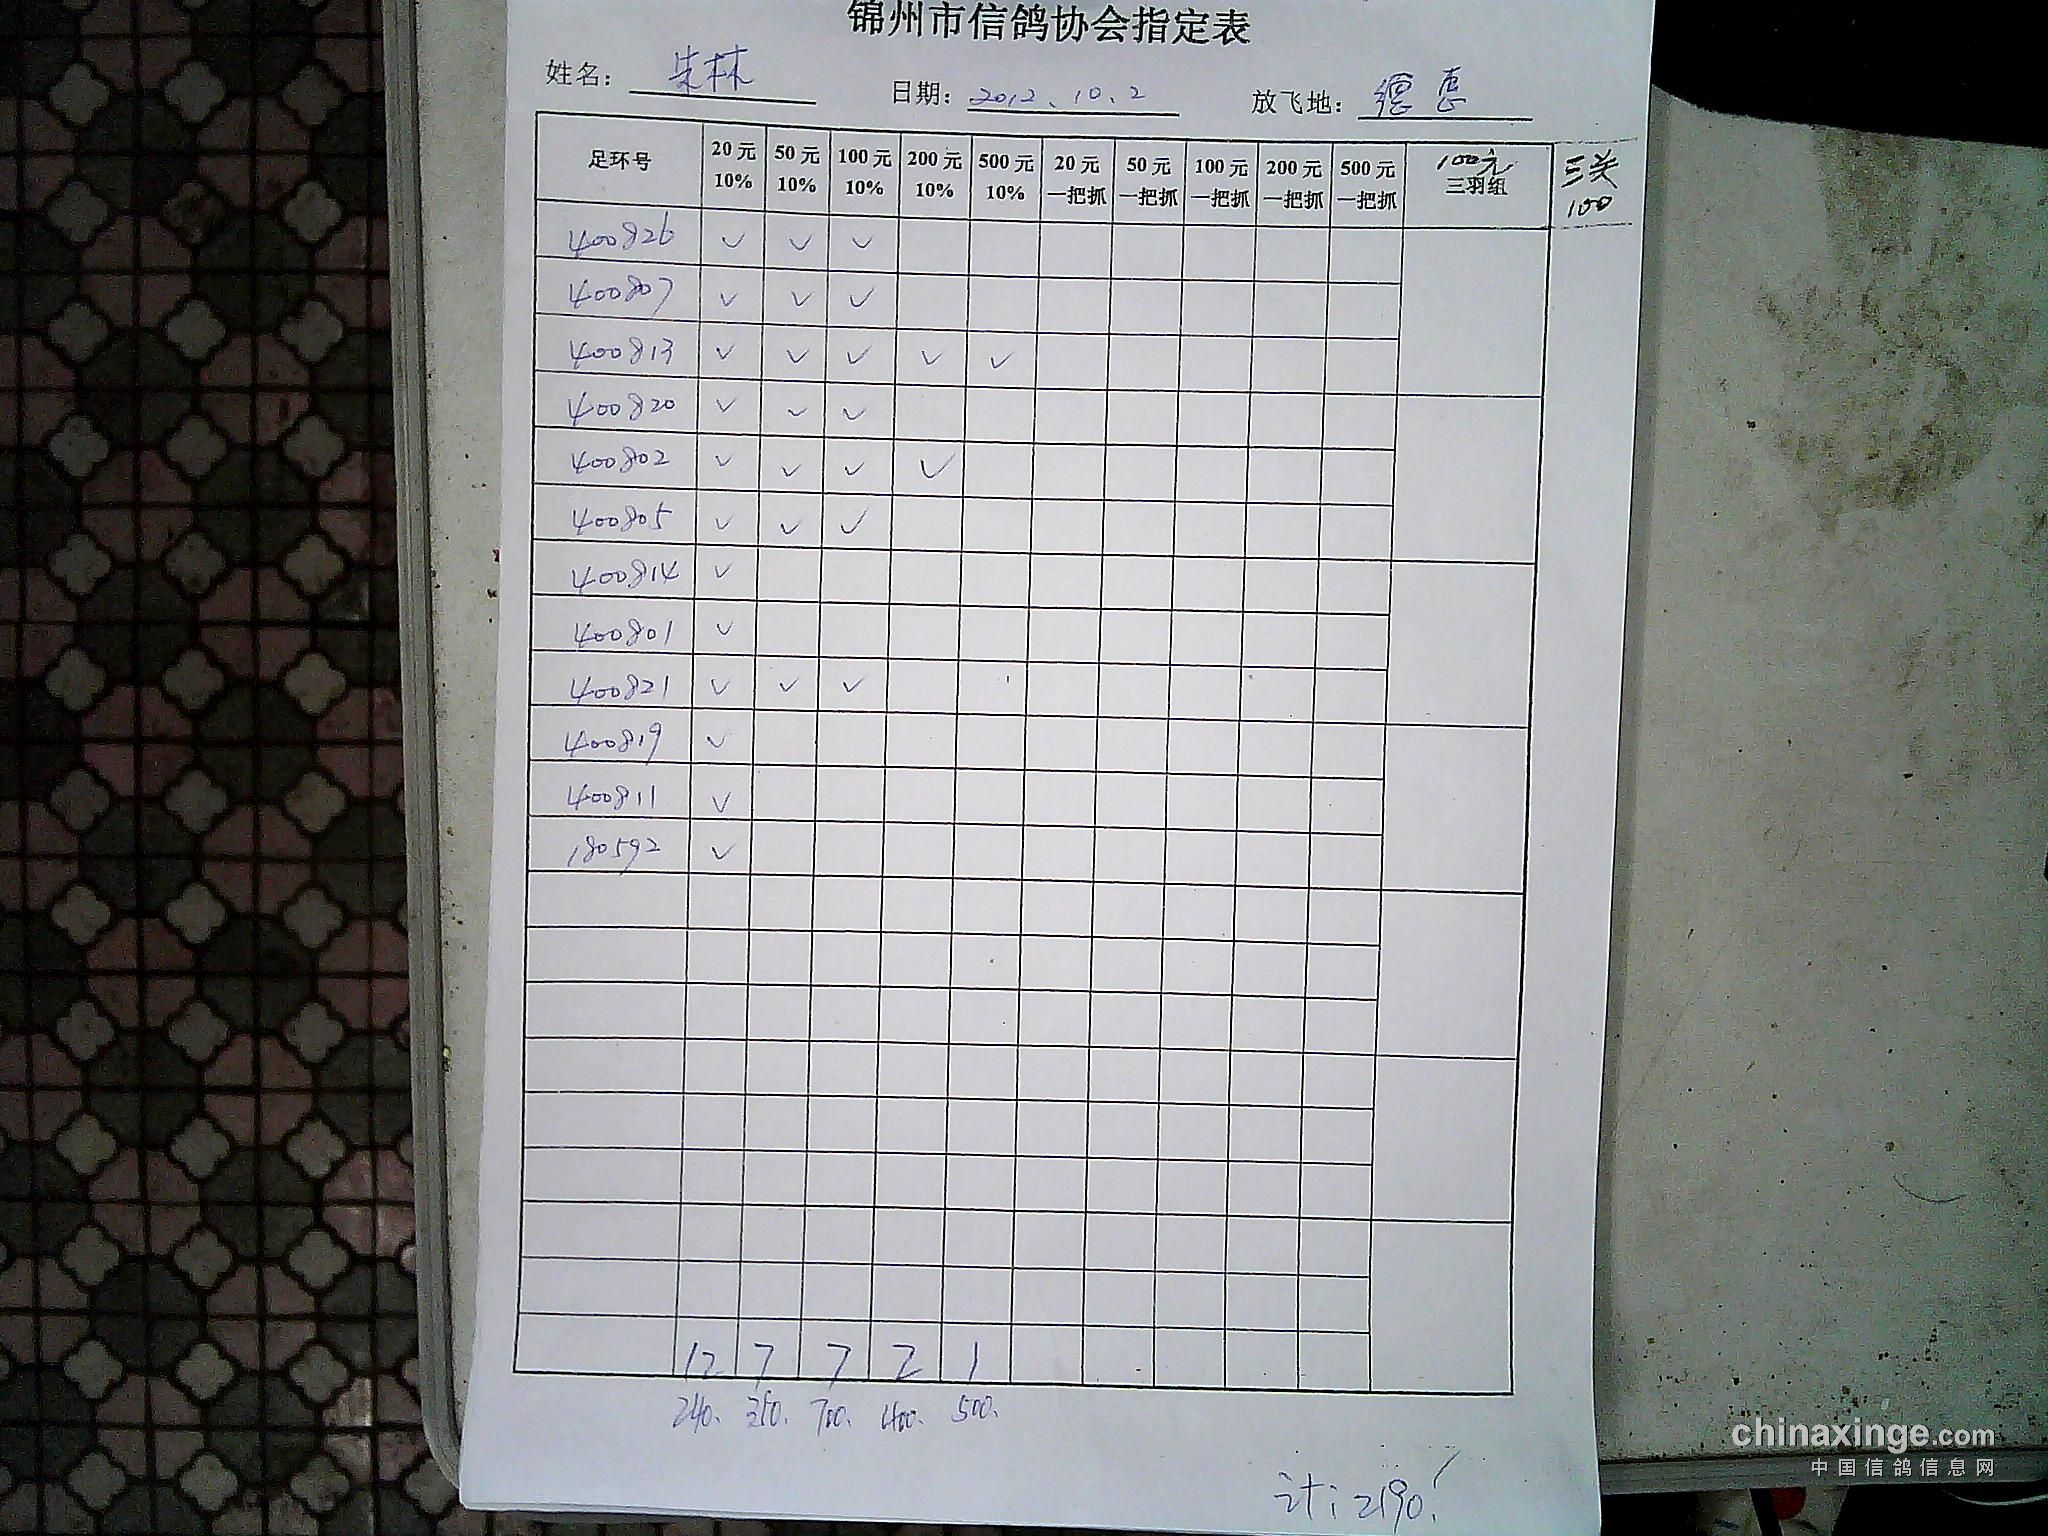 锦州市信鸽协会指定表
姓名： 朱林 日期： 2012.10.2 放飞地： 德惠
足环号 20元 10% 50元 10% 100元 10% 200元 10% 500元 10% 20元 一把抓 50元 一把抓 100元 一把抓 200元 一把抓 500元 一把抓 100元 三羽组 三关 100
400826 ✓ ✓ ✓
400807 ✓ ✓ ✓
400813 ✓ ✓ ✓ ✓ ✓
400820 ✓ ✓ ✓
400802 ✓ ✓ ✓ ✓
400805 ✓ ✓ ✓
400814 ✓
400801 ✓
400821 ✓ ✓ ✓
400819 ✓
400811 ✓
180592 ✓
12 7 7 2 1
240. 350. 700. 400. 500.
计: 2190.
chinaxinge.com
中国信鸽信息网